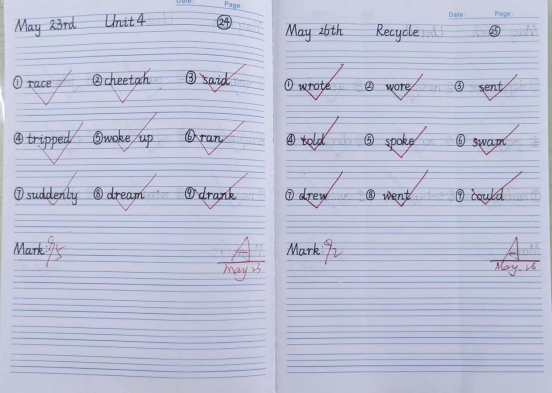 Date: Page:
May 23rd Unit 4 24
① race ② cheetah ③ said
④ tripped ⑤ woke up ⑥ ran
⑦ suddenly ⑧ dream ⑨ drank
Mark:
A
May 23
Date: Page:
May 26th Recycle 25
① wrote ② wore ③ sent
④ told ⑤ spoke ⑥ swam
⑦ drew ⑧ went ⑨ could
Mark:
A
May. 26